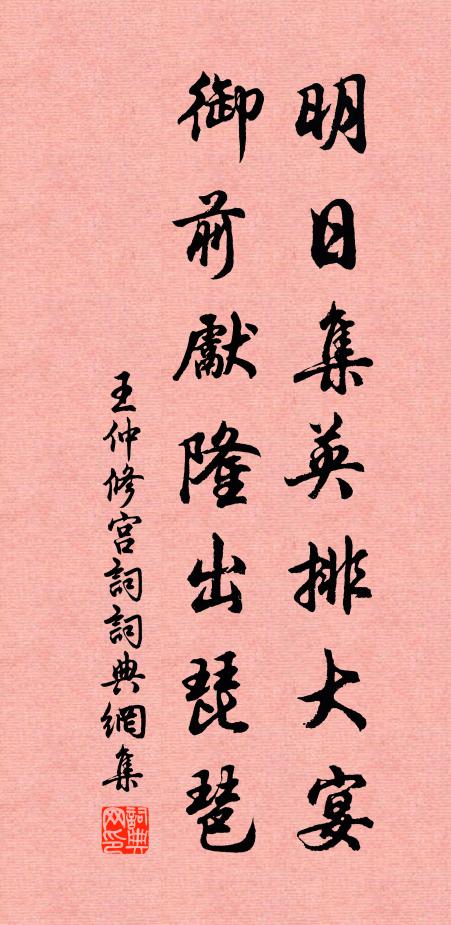 明日集英排大宴
御前獻隆出琵琶
王仲修宮詞詞典網集
詞典网印